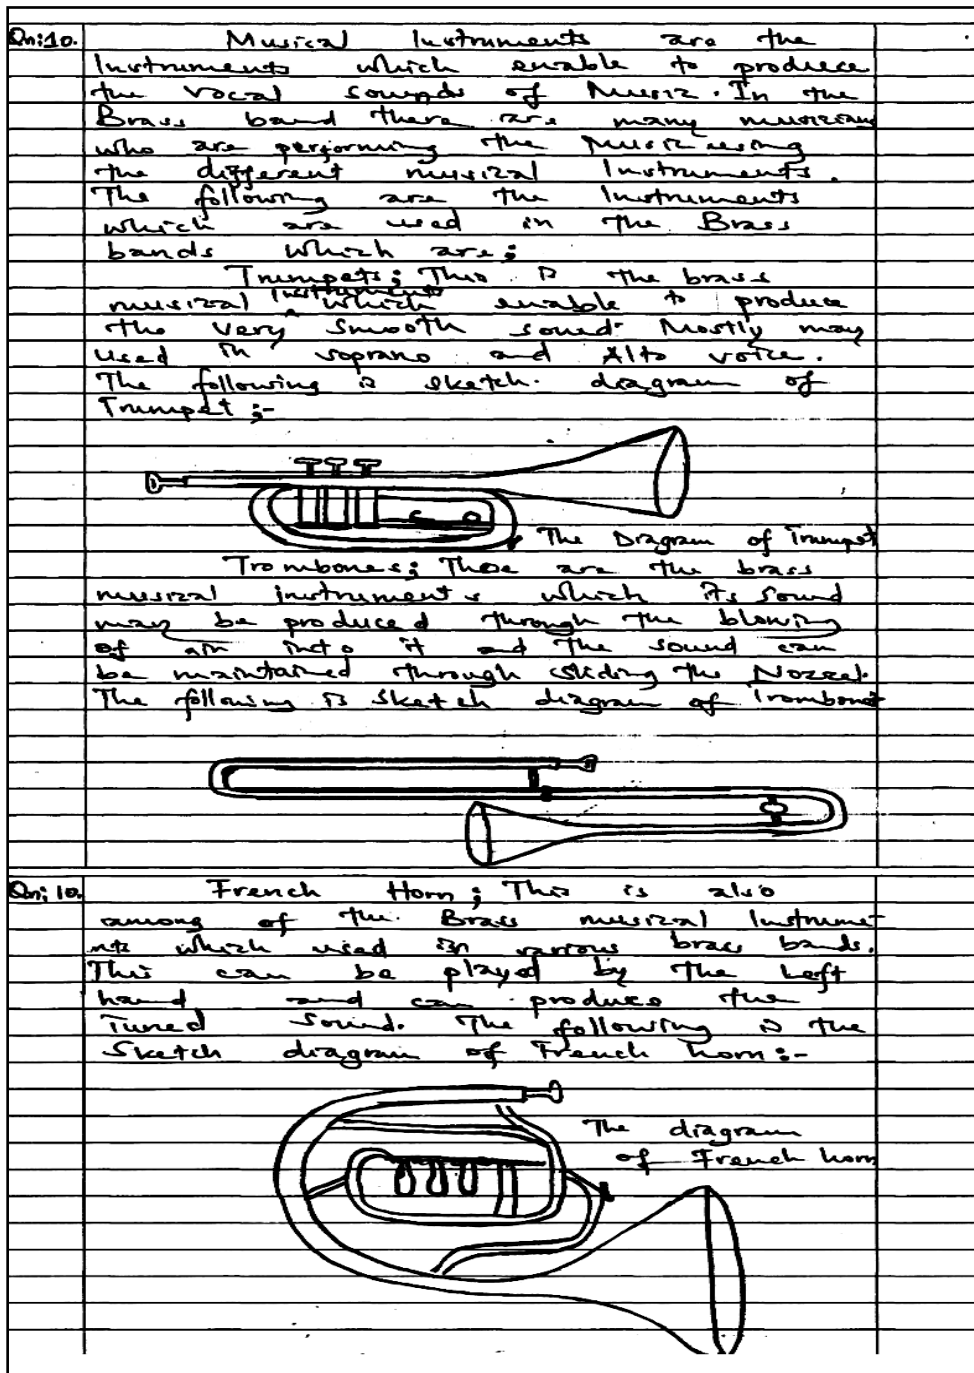 Qn:10. Musical Instruments are the
Instruments which enable to produce
the vocal sounds of Music. In the
Brass band there are many musicians
who are performing the Music using
the different musical Instruments.
The following are the Instruments
which are used in the Brass
bands which are;
Trumpets; This is the brass
musical Instruments which enable to produce
the very smooth sound. Mostly may
used in soprano and Alto voice.
The following is sketch diagram of
Trumpet;-
The Diagram of Trumpet
Trombones; These are the brass
musical instruments which its sound
may be produced through the blowing
of air into it and the sound can
be maintained through sliding the Nozzel.
The following is sketch diagram of Trombones
Qn; 10. French Horn; This is also
among of the Brass musical Instrume-
nts which used in various brass bands.
This can be played by the Left
hand and can produce the
Tuned Sound. The following is the
Sketch diagram of French horn:-
The diagram
of French horn